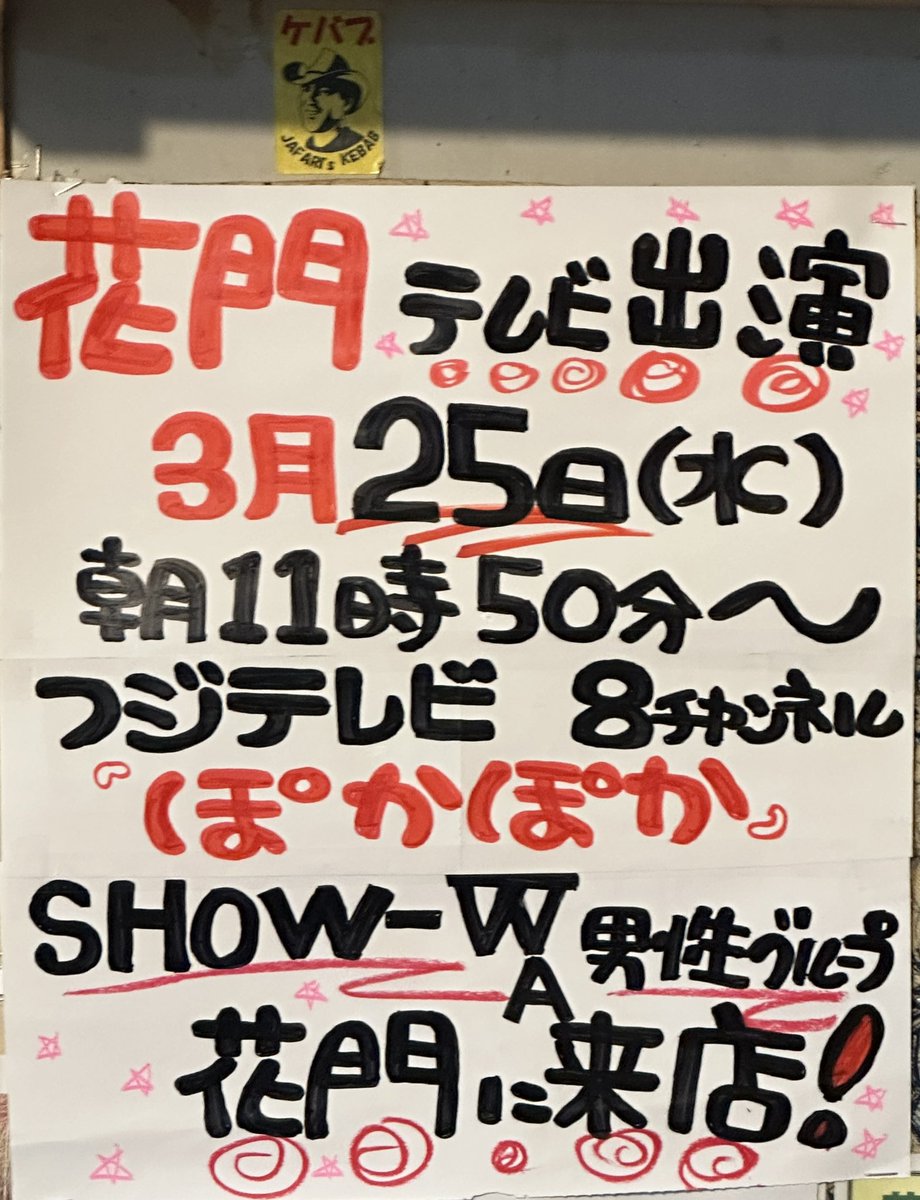 ケバブ
JAFARI's KEBAB
花門 テレビ出演
3月25日(水)
朝11時50分〜
フジテレビ 8チャンネル
"ぽかぽか"
SHOW-WA 男性グループ
花門に来店!